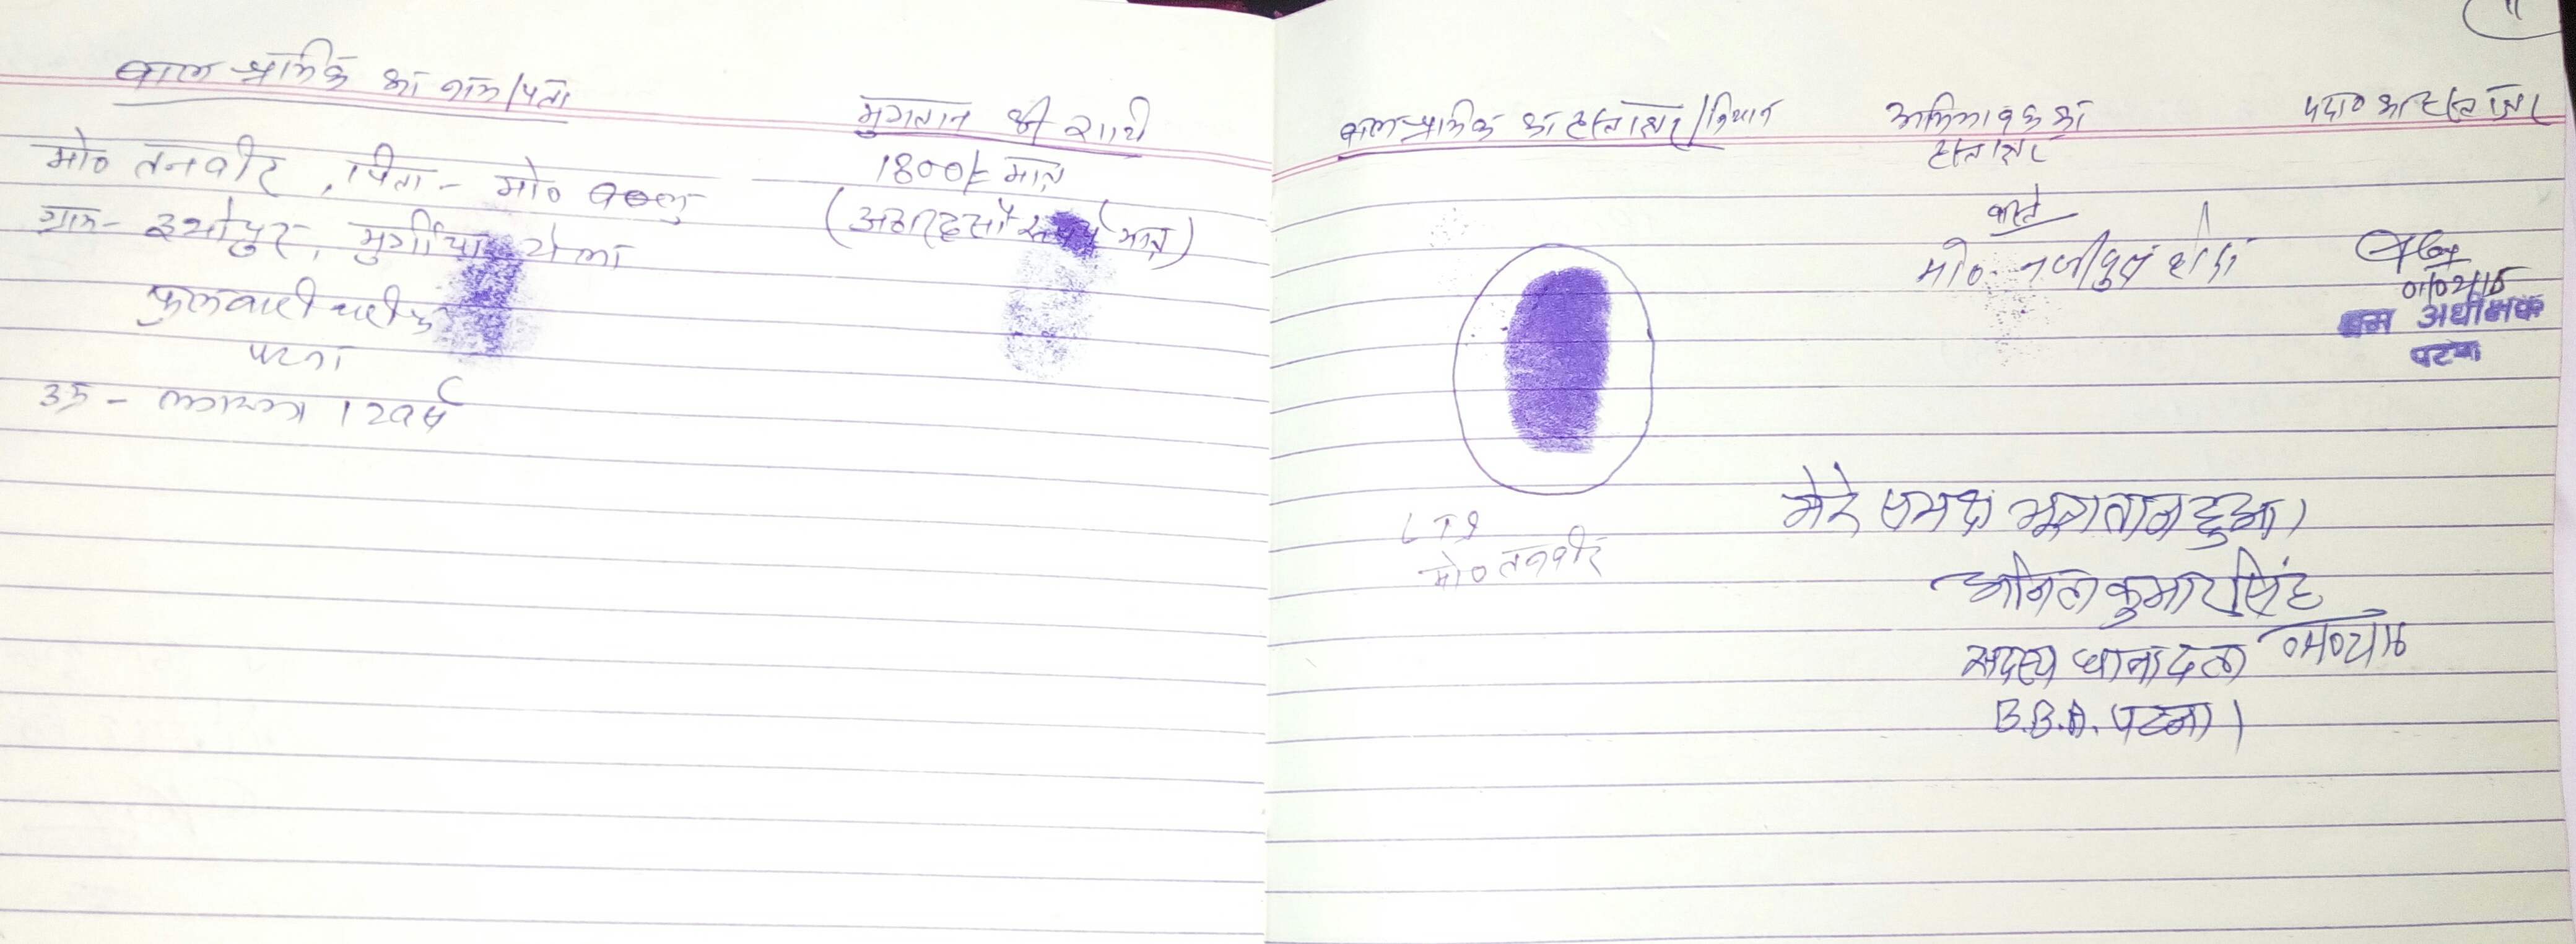 बाल श्रमिक का नाम/पता
मो० तनवीर, पिता- मो० बबलु
ग्राम- इसोपुर, मुर्गीया टोला
फुलवारी शरीफ
पटना
उम्र - लगभग 12 वर्ष
भुगतान की राशी
1800/- मात्र
(अठारह सौ रूपये मात्र)
11
बाल श्रमिक का हस्ताक्षर/निशान
LTI
मो० तनवीर
अभिभावक का
हस्ताक्षर
वास्ते
मो०
पदा० का हस्ताक्षर
01/02/16
श्रम अधीक्षक
पटना
मेरे समक्ष भुगतान हुआ।
कुमार सिंह
सदस्य धावा दल
B.B.A. पटना।